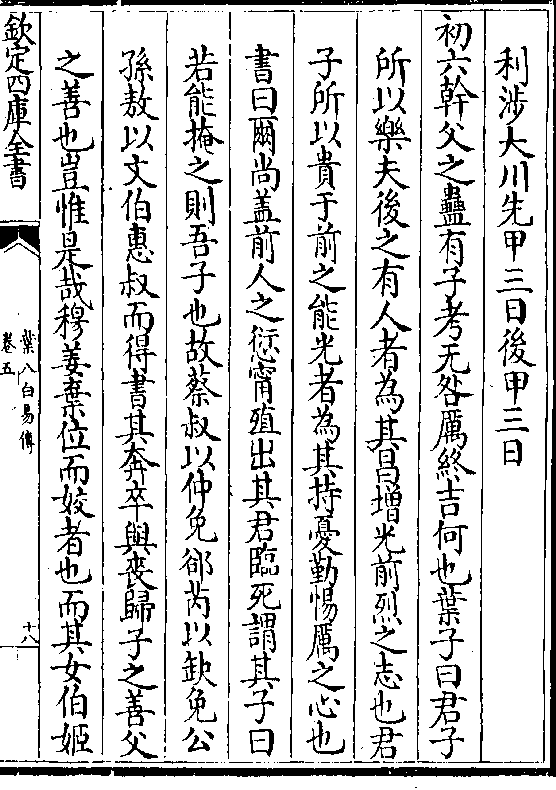 利涉大川先甲三日後甲三日
初六幹父之蠱有子考无咎厲終吉何也葉子曰君子
所以樂夫後之有人者為其昌增光前烈之志也君
子所以貴于前之能光者為其持憂勤惕厲之心也
書曰爾尚盖前人之愆甯殖出其君臨死謂其子曰
若能掩之則吾子也故蔡叔以仲免郤芮以缺免公
孫敖以文伯惠叔而得書其奔卒與喪歸子之善父
之善也豈惟是哉穆姜棄位而姣者也而其女伯姬
欽定四庫全書
葉八白易傳
卷五
十八